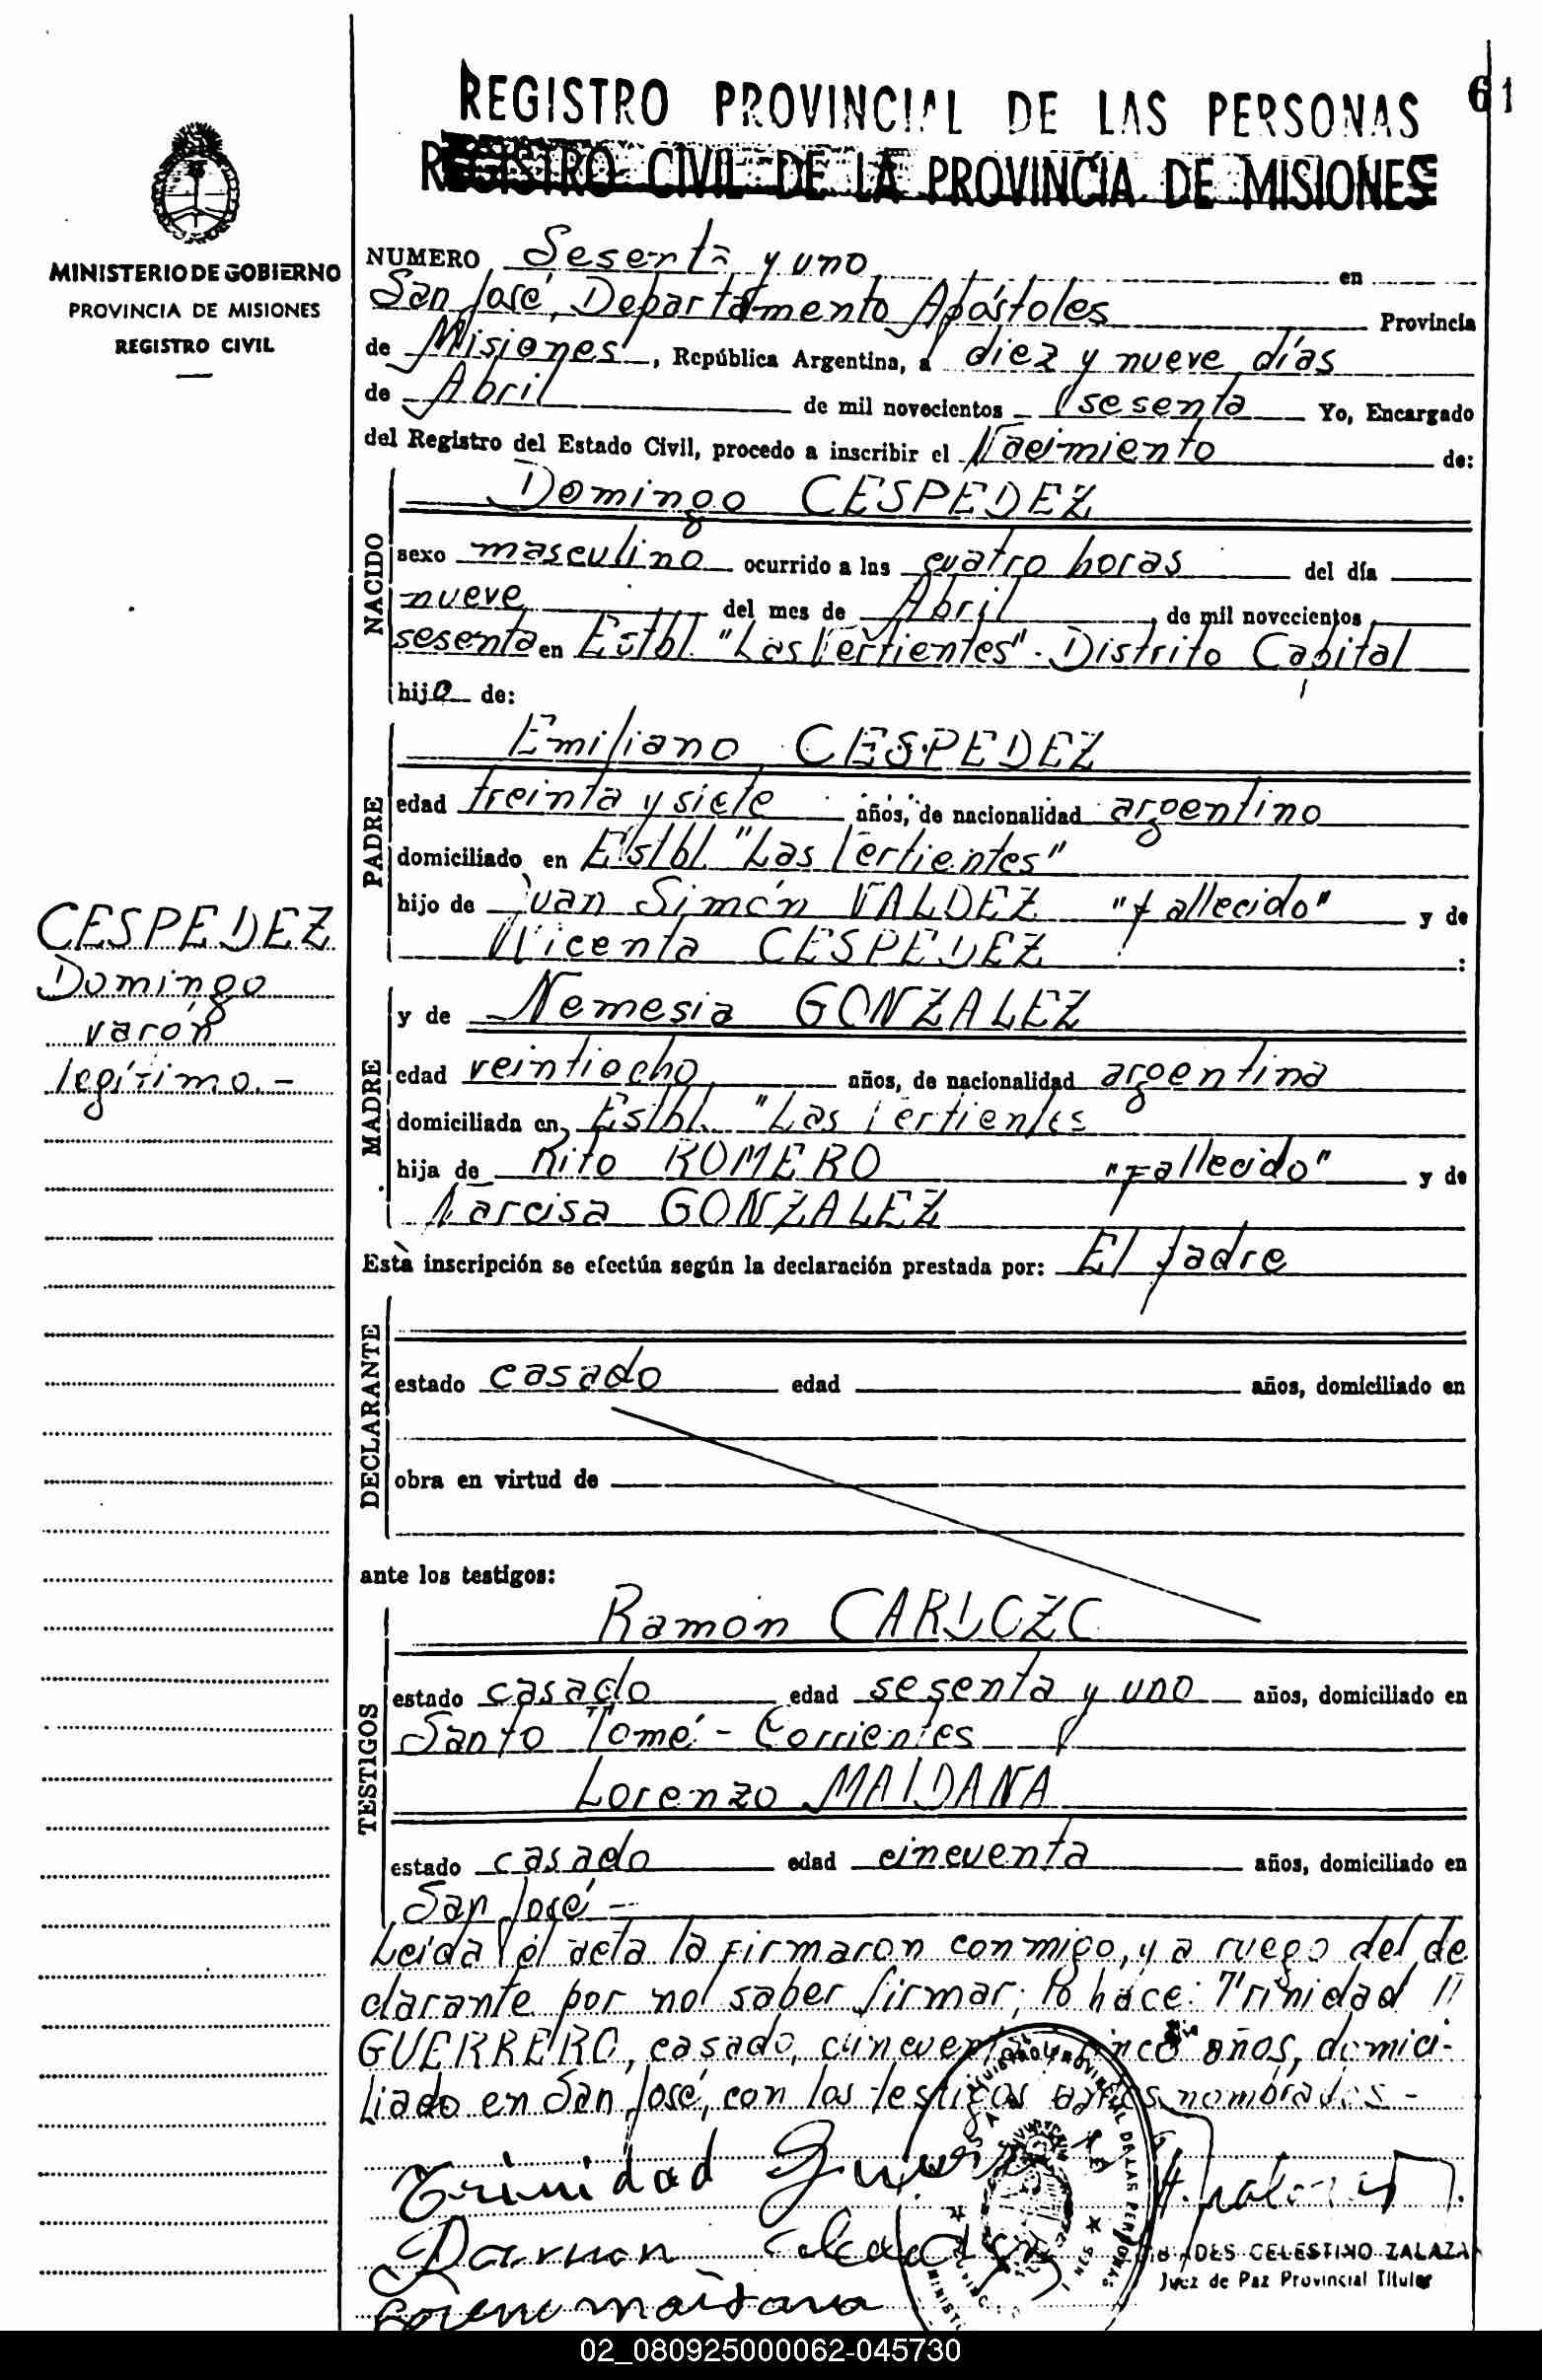 61
REGISTRO PROVINCIAL DE LAS PERSONAS
REGISTRO CIVIL DE LA PROVINCIA DE MISIONES
MINISTERIO DE GOBIERNO
PROVINCIA DE MISIONES
REGISTRO CIVIL
NUMERO Sesenta y uno en
San José, Departamento Apóstoles Provincia
de Misiones, República Argentina, a diez y nueve días
de Abril de mil novecientos sesenta Yo, Encargado
del Registro del Estado Civil, procedo a inscribir el Nacimiento de:
NACIDO
Domingo CESPEDEZ
sexo masculino ocurrido a las cuatro horas del día
nueve del mes de Abril de mil novecientos
sesenta en Estbl. "Las Vertientes". Distrito Capital
hijo de:
PADRE
Emiliano CESPEDEZ
edad treinta y siete años, de nacionalidad argentino
domiciliado en Estbl. "Las Vertientes"
hijo de Juan Simón VALDEZ "fallecido" y de
Vicenta CESPEDEZ :
CESPEDEZ
Domingo
varón
legítimo.-
MADRE
y de Nemesia GONZALEZ
edad veintiocho años, de nacionalidad argentina
domiciliada en Estbl. "Las Vertientes
hija de Rito ROMERO "Fallecido" y de
Narcisa GONZALEZ
Esta inscripción se efectúa según la declaración prestada por: El padre
DECLARANTE
estado casado edad años, domiciliado en
obra en virtud de
ante los testigos:
TESTIGOS
Ramón CARDOZO
estado casado edad sesenta y uno años, domiciliado en
Santo Tomé - Corrientes
Lorenzo MAIDANA
estado casado edad cincuenta años, domiciliado en
San José -
Leida el acta la firmaron conmigo, y a ruego del de
clarante por no saber firmar, lo hace: Trinidad
GUERRERO, casado, cincuenta y cinco años, domici-
liado en San José, con los testigos antes nombrados -
Trinidad
maidana
CELESTINO ZALAZA
Juez de Paz Provincial Titular
02_080925000062-045730